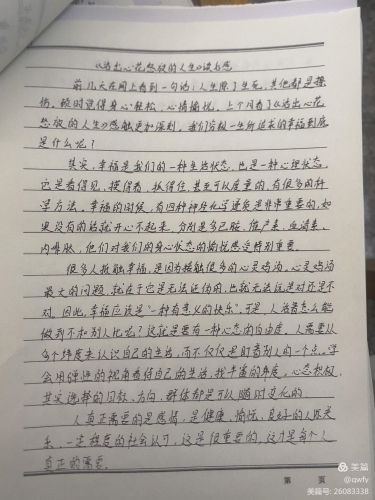 《活出心花怒放的人生》读书感
前几天在网上看到一句话：人生除了生死，其他都是擦
伤。顿时觉得身心轻松，心情愉悦。上个月看了《活出心花
怒放的人生》感触更加深刻。我们穷极一生所追求的幸福到底
是什么呢？
其实，幸福是我们的一种生活状态，也是一种心理状态，
它是看得见、摸得着、抓得住，甚至可以度量的，有很多的科
学方法。幸福的时候，有四种神经化学递质是非常重要的，如
果没有的话就开心不起来，分别是多巴胺、催产素、血清素、
内啡肽，他们对我们的身心状态的愉悦感受特别重要。
很多人接触幸福，是因为接触很多的心灵鸡汤，心灵鸡汤
最大的问题，就在于它是无法证伪的，也就无法说是对还是不
对。因此，幸福应该是"一种有意义的快乐"。可是，人活着怎么能
做到不和别人比呢？这就是要有一种心态的自由度，人需要从
多个纬度来认识自己的生活，而不仅仅是盯着别人的一个点。学
会用弹性的视角看待自己的生活，找丰富的角度，心态积极，
其实选择的目标、方向、群体都是可以随时变化的
人真正需要的是感情，是健康、愉悦、良好的人际关
系，一定程度的社会认可，这是很重要的，这才是每个人
真正的需要。
第 页
美篇
@qwfy
美篇号: 26083338